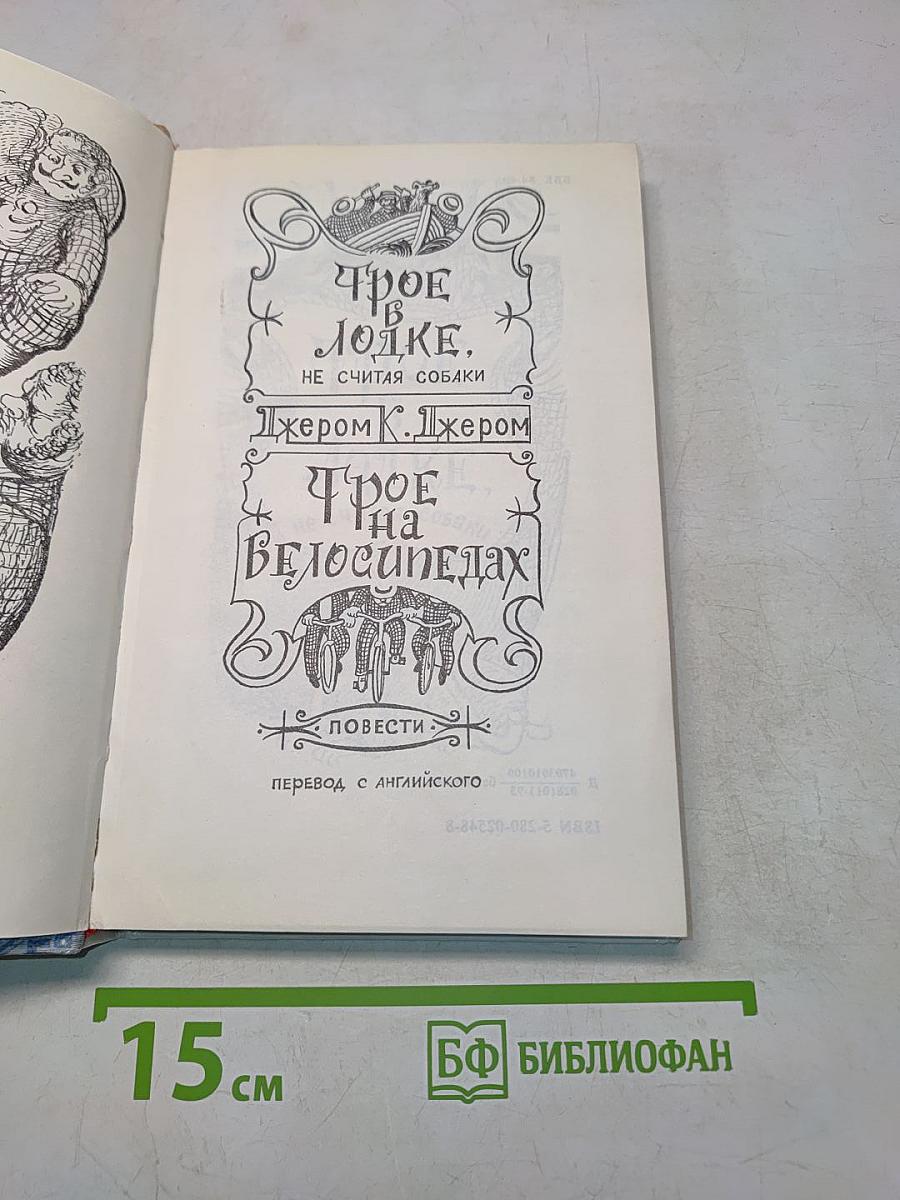 Трое
в
лодке,
не считая собаки
Джером К. Джером
Трое
на
велосипедах
повести
перевод с английского
ISBN 5-280-02548-8
15 см
БФ БИБЛИОФАН